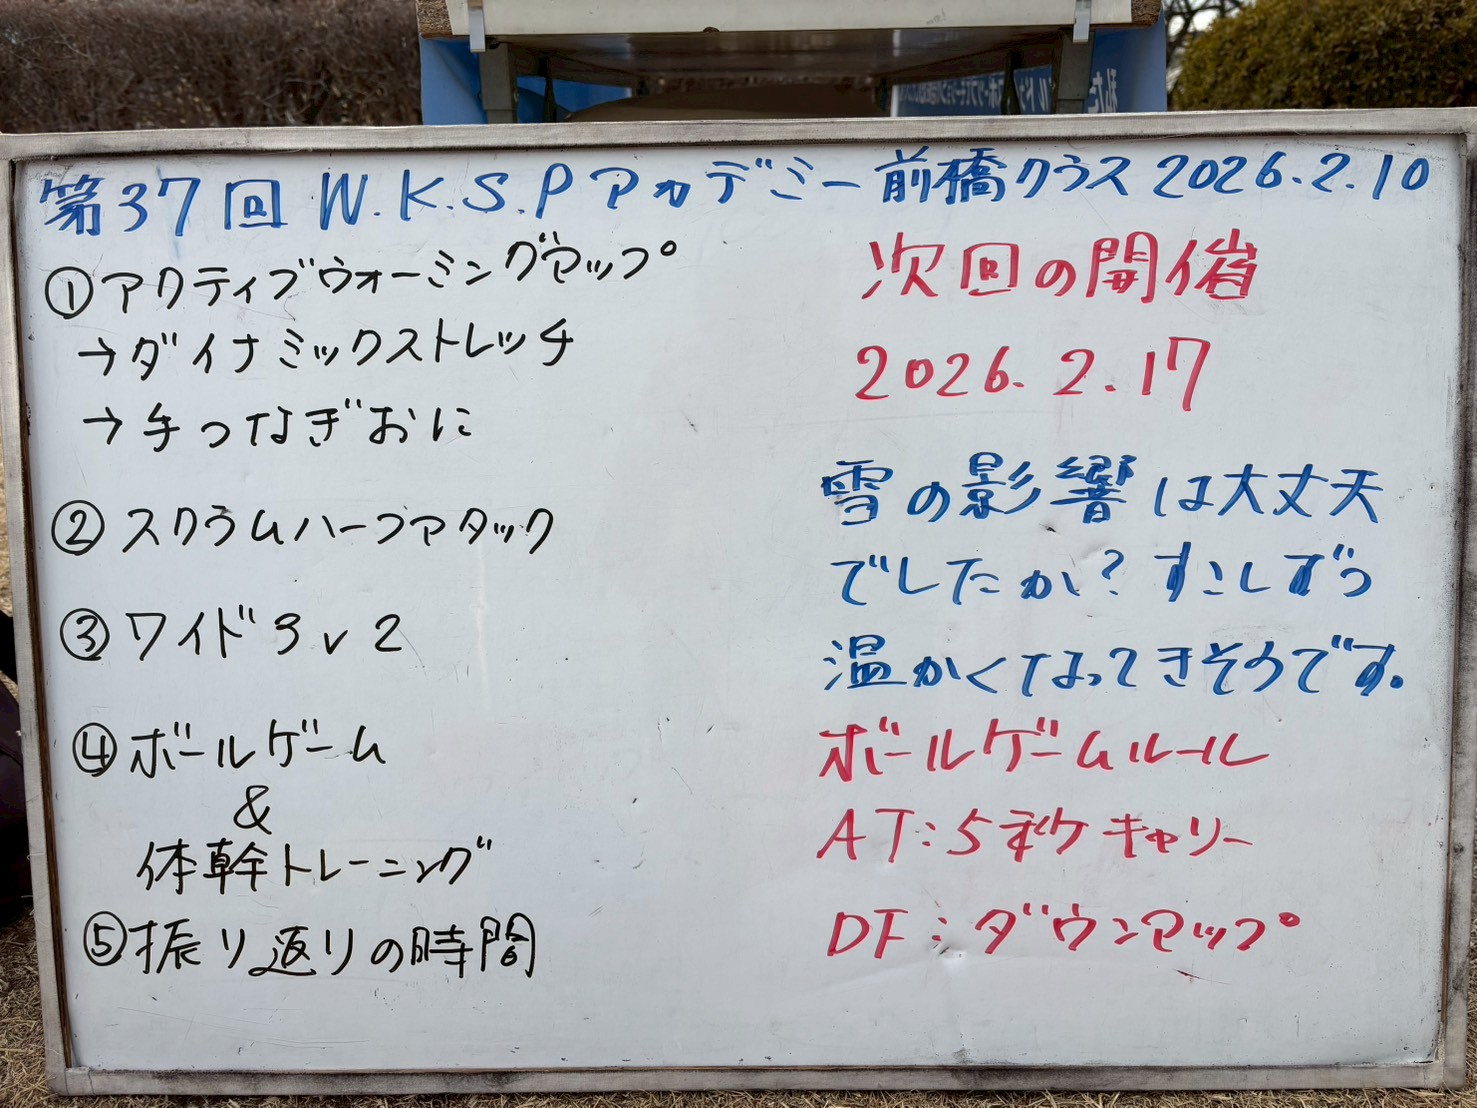 第37回 W.K.S.Pアカデミー前橋クラス 2026.2.10
①アクティブウォーミングアップ
→ダイナミックストレッチ
→手つなぎおに
②スクラムハーフアタック
③ワイド3v2
④ボールゲーム
&
体幹トレーニング
⑤振り返りの時間
次回の開催
2026.2.17
雪の影響は大丈夫
でしたか?すこしずつ
温かくなってきそうです。
ボールゲームルール
AT:5秒キャリー
DF:ダウンアップ